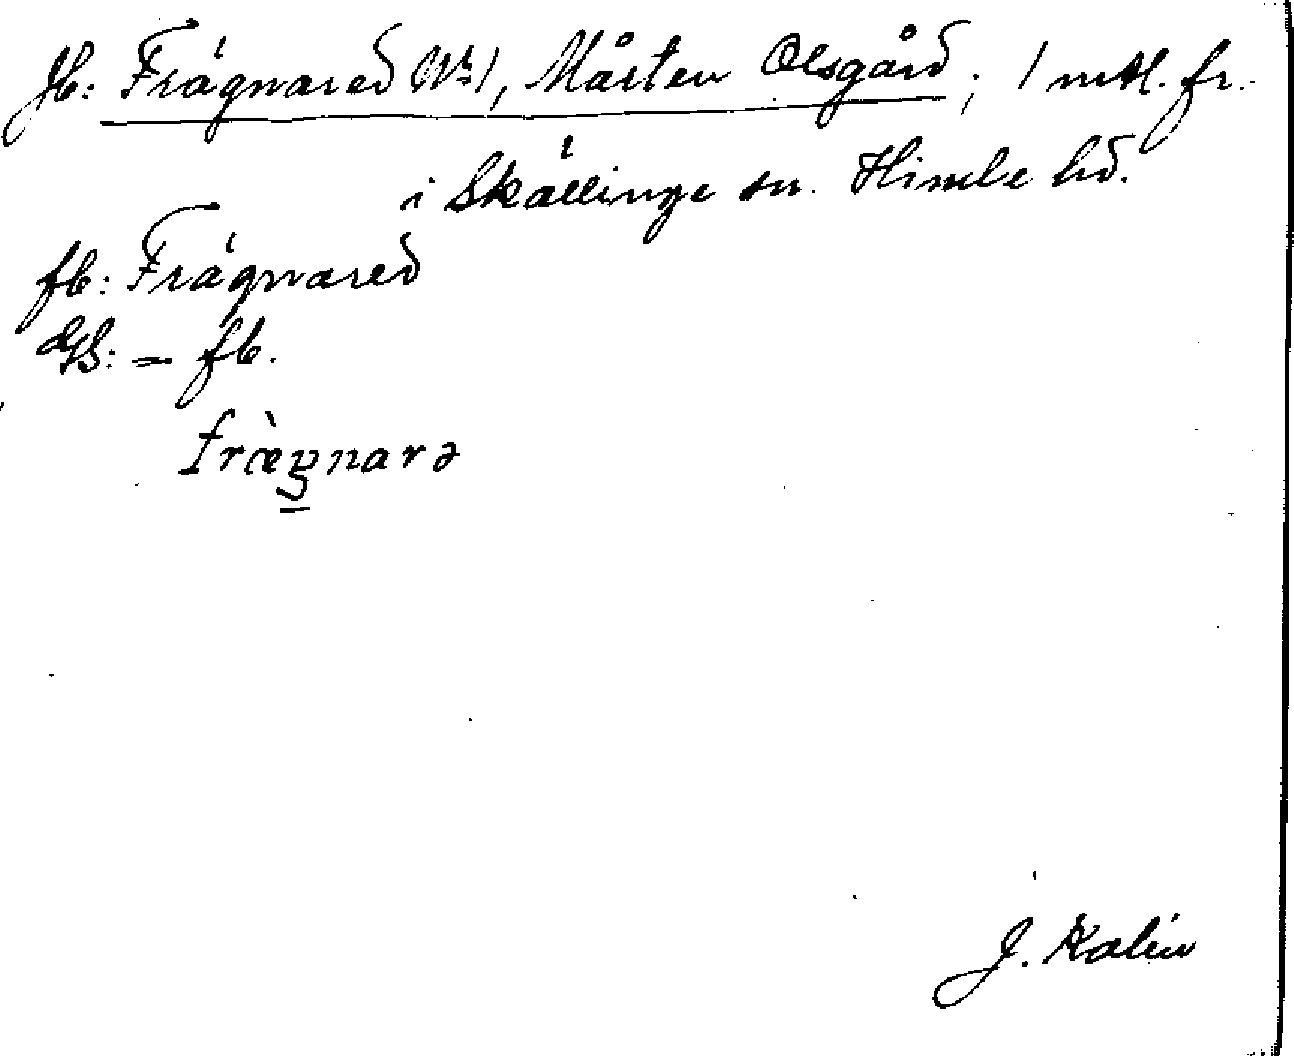 Jb: Frägnared No 1, Mårten Olsgård; 1 mtl. fr.
i Skällinge sn. Himle hd.
fb: Frägnared
GS: = fb.
fræ̀gnarə
J. Kalén